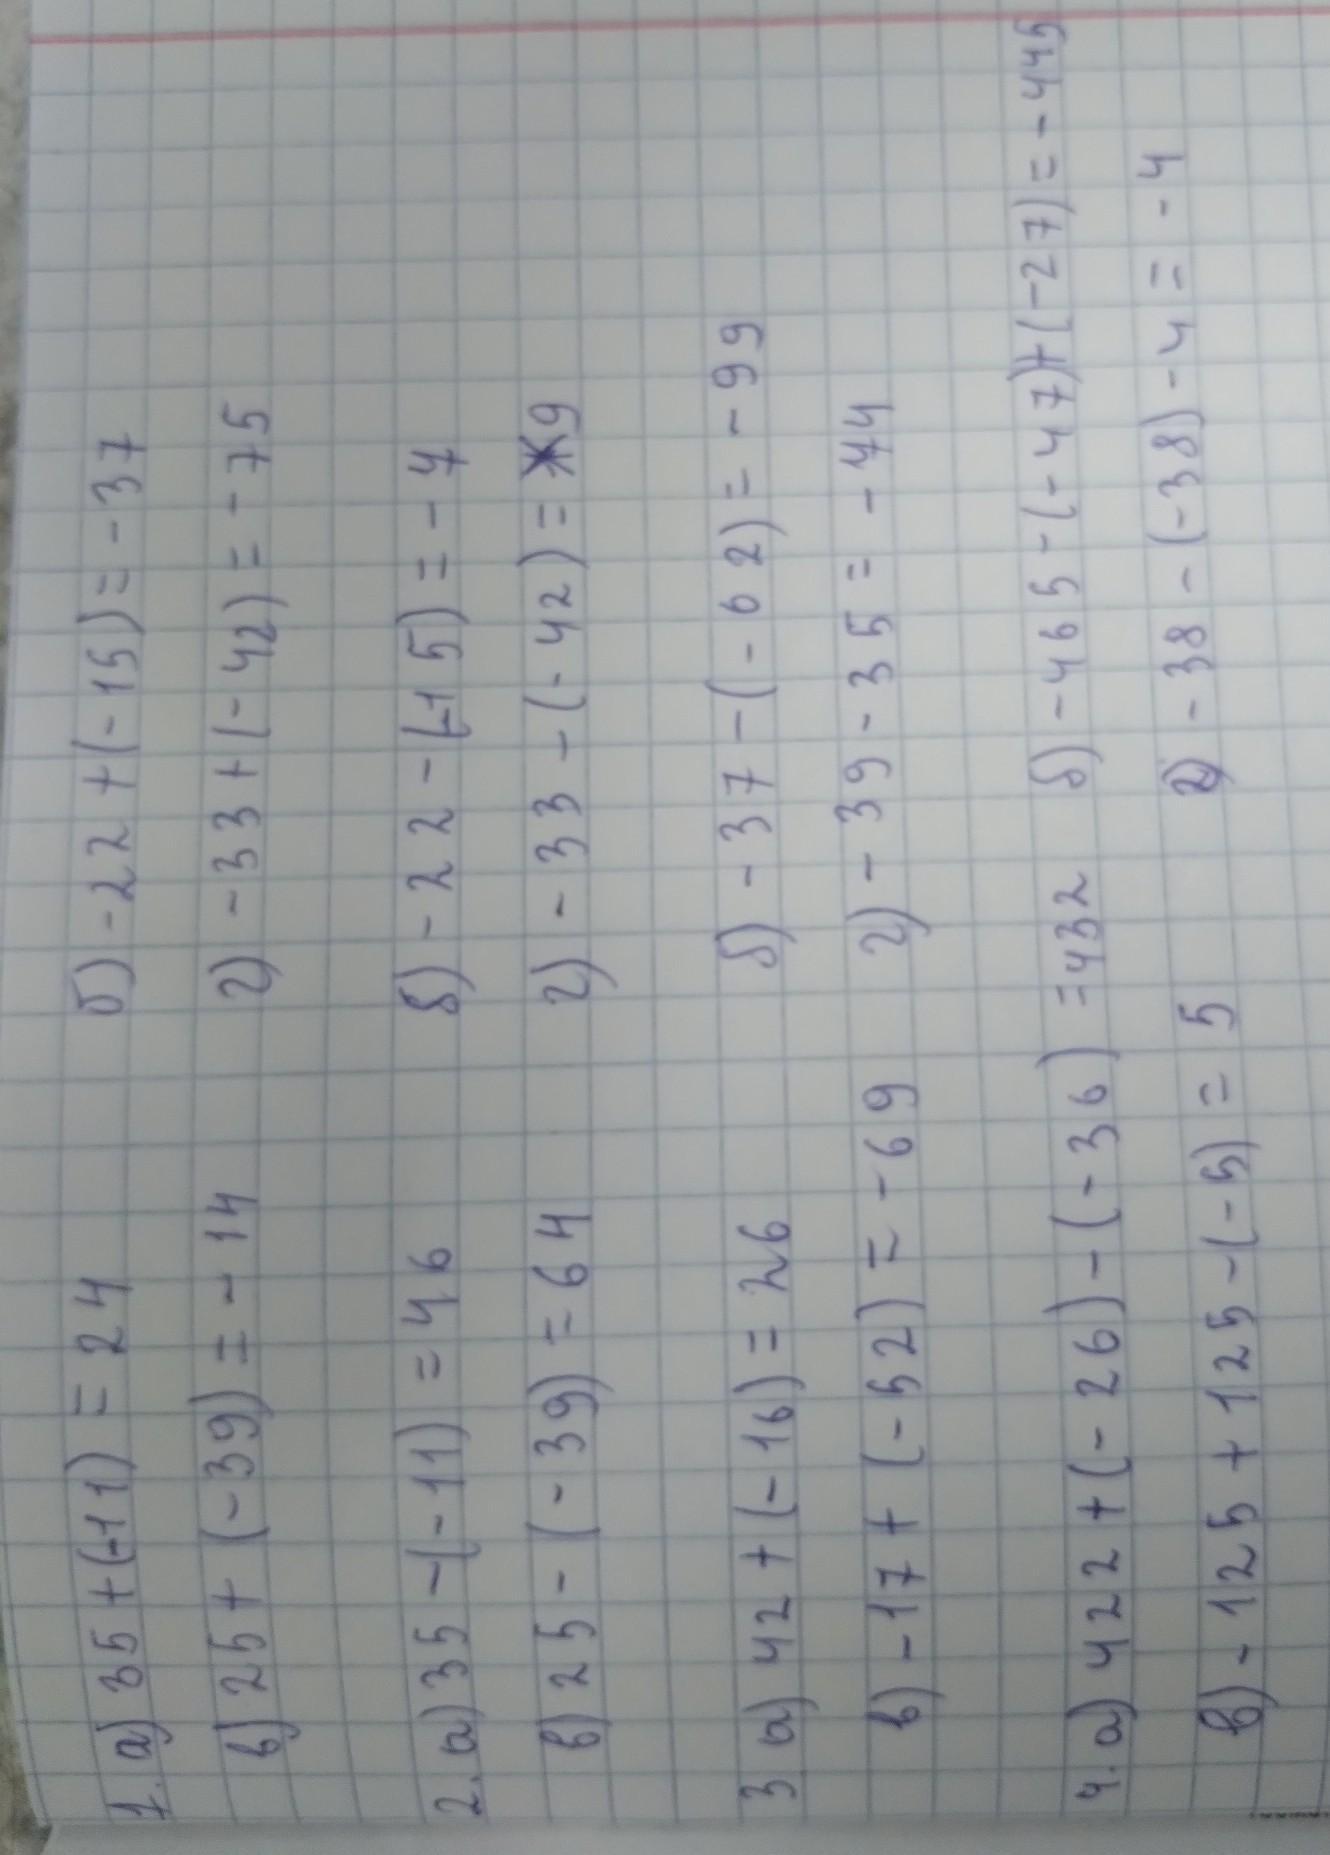 1. а) 35 + (-11) = 24 б) -22 + (-15) = -37
в) 25 + (-39) = -14 г) -33 + (-42) = -75
2. а) 35 - (-11) = 46 б) -22 - (-15) = -7
в) 25 - (-39) = 64 г) -33 - (-42) = 9
3 а) 42 + (-16) = 26 б) -37 - (-62) = -99
в) -17 + (-52) = -69 г) -39 - 35 = -74
4. а) 422 + (-26) - (-36) = 432 б) -465 - (-47) + (-27) = -445
в) -125 + 125 - (-5) = 5 г) -38 - (-38) - 4 = -4